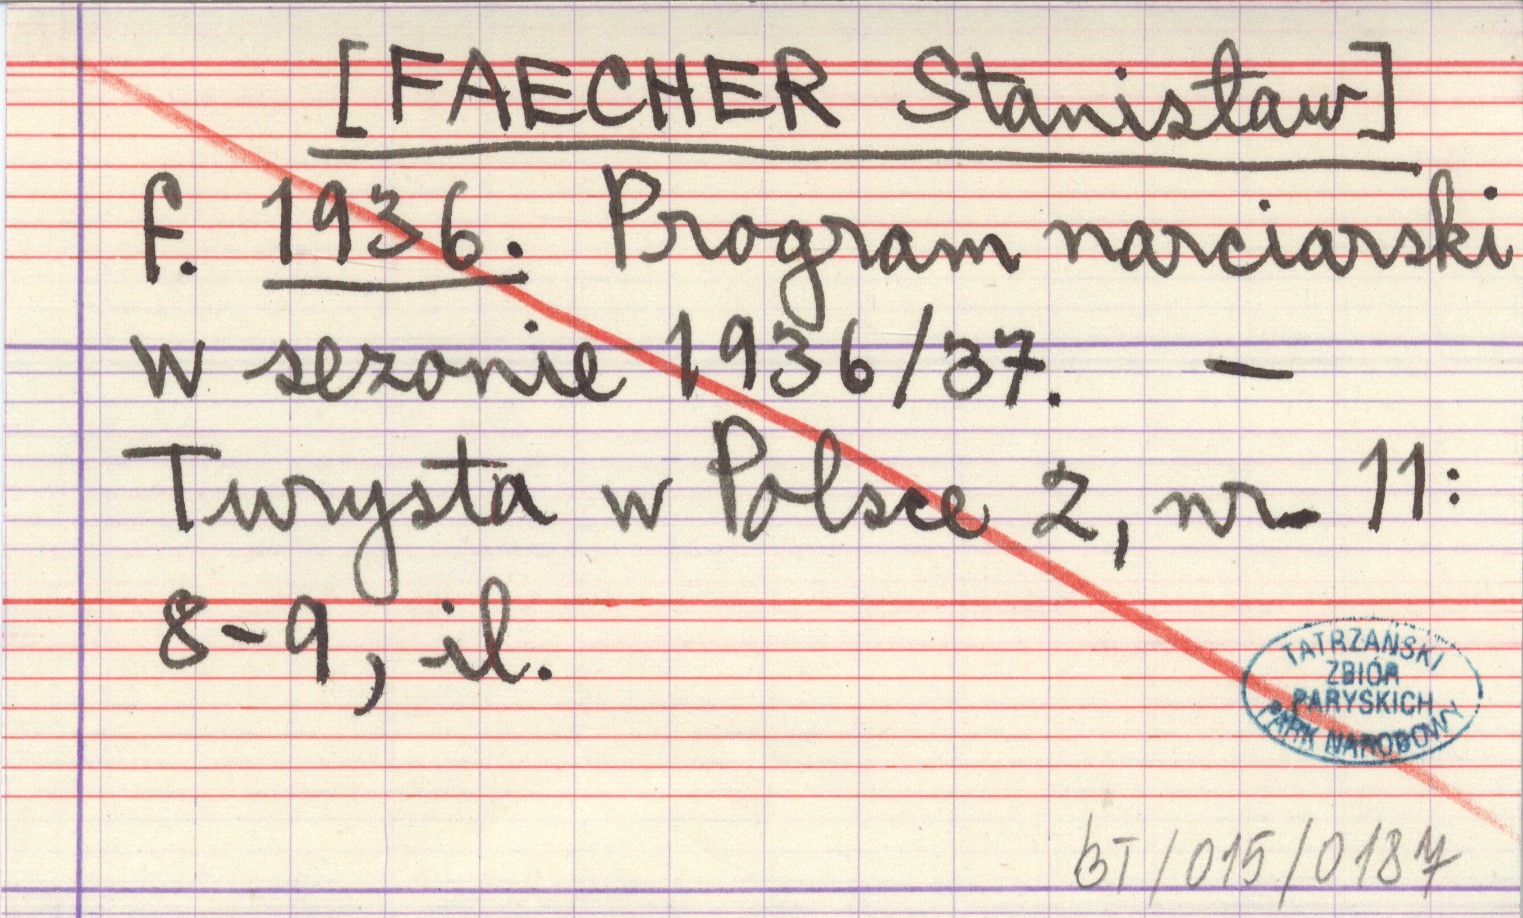 [FAECHER Stanisław]
f. 1936. Program narciarski
w sezonie 1936/37. —
Turysta w Polsce 2, nr 11:
8-9, il.
TATRZAŃSKI
ZBIÓR
PARYSKICH
PARK NARODOWY
BT/015/0187